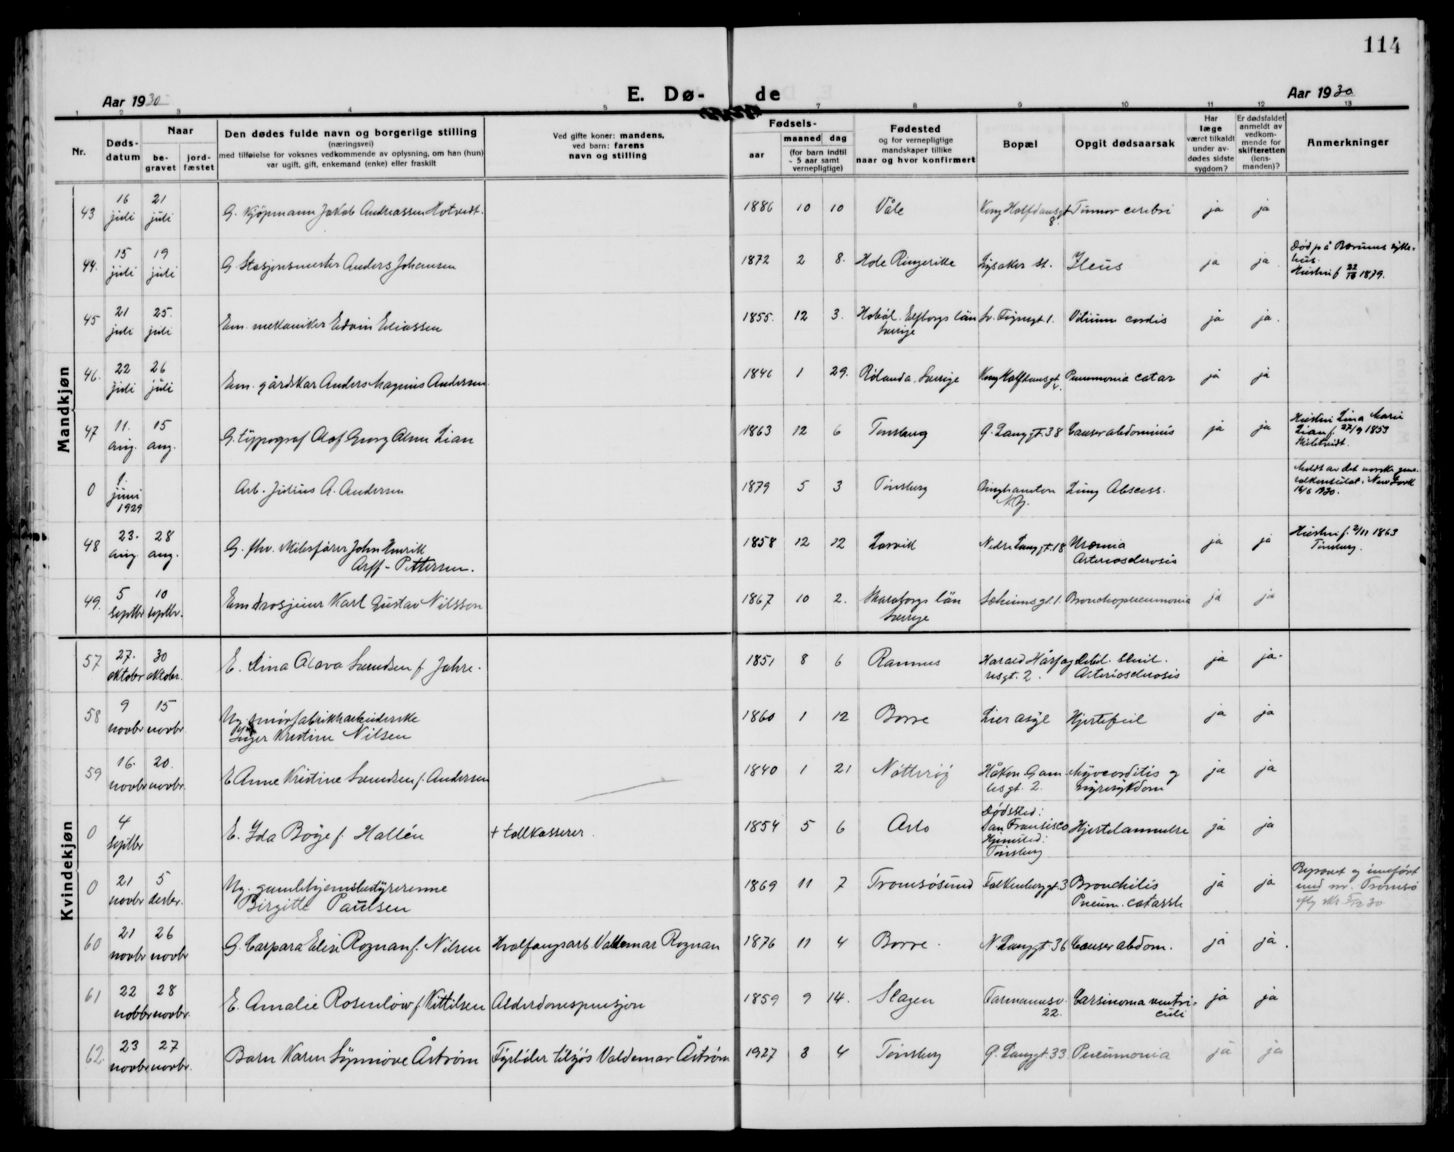 114
Aar 1930
E. Dø-
de
Aar 1930
1 2 3 4 5 7 8 9 10 11 12 13
Nr.
Døds-
datum
Naar
be-
gravet
jord-
fæstet
Den dødes fulde navn og borgerlige stilling
(næringsvei)
med tilføielse for voksnes vedkommende av oplysning, om han (hun)
var ugift, gift, enkemand (enke) eller fraskilt
Ved gifte koner: mandens,
ved barn: farens
navn og stilling
Fødsels-
aar
maaned dag
(for barn indtil
5 aar samt
vernepligtige)
Fødested
og for vernepligtige
mandskaper tillike
naar og hvor konfirmert
Bopæl
Opgit dødsaarsak
Har
læge
været tilkaldt
under av-
dødes sidste
sygdom?
Er dødsfaldet
anmeldt av
vedkom-
mende for
skifteretten
(lens-
manden)?
Anmerkninger
Mandkjøn
43 16 juli 21 juli G. Kjøpmann Jakob Andreassen Hotvedt. 1886 10 10 Våle Kong Halfdansgt 8 Tumor cerebri ja ja
44. 15 juli 19 juli G. Stasjonsmester Anders Johansen 1872 2 8. Hole Ringerike Lysaker st. Ileus ja ja Død på Bærums syke-
hus.
Hustru f. 1879.
45 21 juli 25. juli Em. mekaniker Edvin Eliassen 1855. 12 3. Elfborgs län Sverige Sv. Foynsgt 1. Vitium cordis ja ja.
46. 22 juli 26 juli Em. gårdskar Anders Magnus Andersen 1846 1 29. Rölanda, Sverige Kong Halfdansgt Pneumonia catar ja ja
47 11. aug. 15 aug. G. typograf Olaf Georg Lian 1863 12 6 Tønsberg G. Langgt. 38 Cancer abdominis ja ja Hustru Lina Marie
Lian f. 27/9 1853
0 1. juni 1929 Arb. Julius A. Andersen 1879 5 3 Tønsberg Binghamton N.Y. Lung Abscess. Meldt av det norske gene-
ralkonsulat i New York
16/6 1930.
48 23. aug. 28 aug. G. fhv. Milesfører John Henrik
Arff-Pettersen. 1858 12 12 Larvik Nedre Langgt. 18 Uræmia
Arteriosclerosis ja ja Hustru f. 2/11 1863
Tønsberg.
49. 5 septbr 10 septbr. Em drosjeeier Karl Gustav Nilsson 1867 10 2. Skaraborgs län
Sverige 1. Bronchopneumonia ja ja
Kvindekjøn
57 27. oktobr 30 oktobr. E. Lina Olava Svendsen f. Jahre. 1851 8 6 Ramnes Harald Hårfag-
resgt. 2. Debil. senil.
Arteriosclerosis ja ja.
58 9 novbr 15 novbr Ug. smørfabrikkarbeiderske
Inger Kristine Nilsen 1860 1 12 Borre Lier asyl Hjertefeil ja ja
59 16. novbr 20. novbr. E Anne Kristine Svendsen f. Andersen 1840 1 21 Nøtterøy Håkon Gam-
lesgt. 2. Myocorditis og
nyresykdom ja ja
0 4 septbr E. Ida Boge f. Hallén + tollkasserer. 1854 5 6 Oslo Dødssted:
San Fransisco
Hjemsted:
Tønsberg Hjertelammelse ja ja
0 21 novbr 5 desbr. Ug. gamlehjemsbestyrerinne
Birgitte Paulsen 1869 11 7 Tromsøsund Falkenborggt. 3 Bronchitis
Pneum. catarrh ja ja Begravet og innført
med nr. i Tromsø
60 21 novbr 26 novbr G. Caspara Elise Rognan f. Nilsen Hvalfangsarb Valdemar Rognan 1876 11 4 Borre. N. Langgt 36 Cancer abdom. ja ja.
61 22 novbr 28 novbr. E. Amalie Rosenlöw f. Kittilsen Alderdomspensjon 1859 9 14. Slagen Farmannsv.
22. Carsinoma ventri-
culi ja ja
62. 23 novbr 27 novbr. Barn Karen Synnøve Åstrøm Fyrbøter tilsjøs Valdemar Åstrøm 1927 8 4 Tønsberg G. Langgt. 33 Pneumonia ja ja